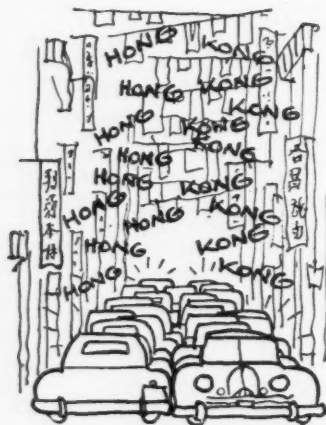 HONG KONG
HONG KONG
KONG
HONG KONG
HONG KONG
HONG KONG
HONG KONG
HONG KONG
HONG KONG
HONG